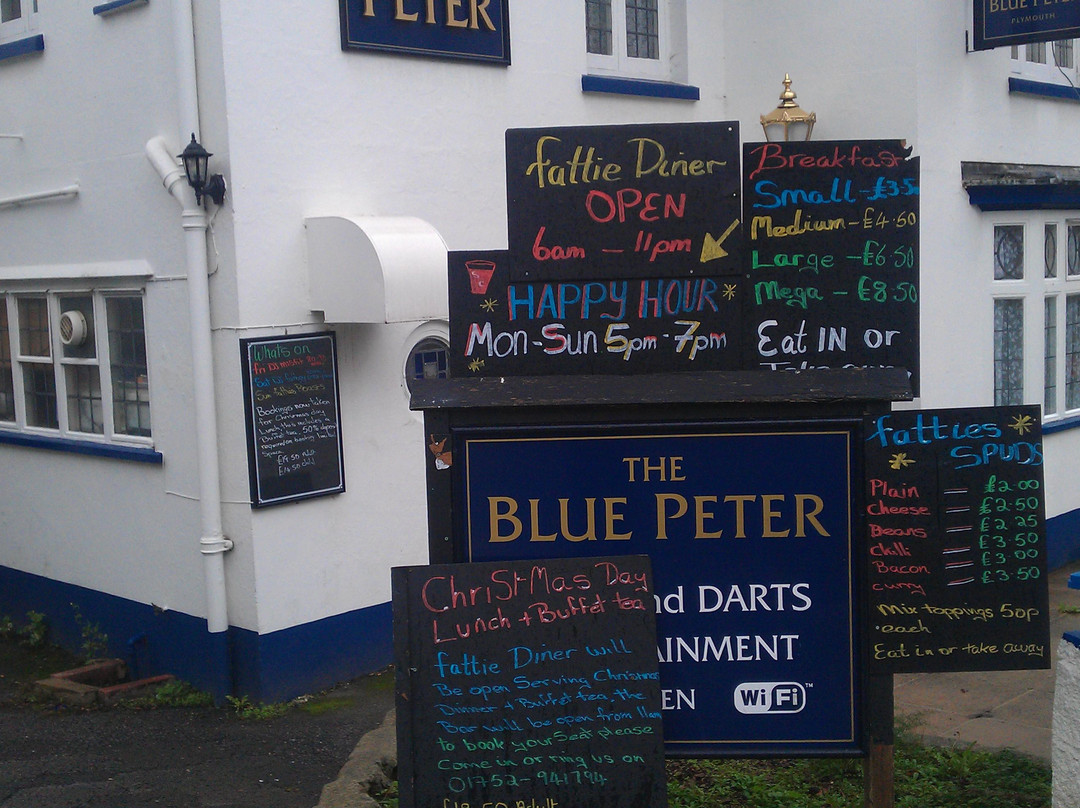 PETER
BLUE PETER
PLYMOUTH
fattie Diner
OPEN
6am - 11pm
HAPPY HOUR
Mon-Sun 5pm-7pm
Breakfast
Small - £3.5
Medium - £4.50
Large - £6.50
Mega - £8.50
Eat IN or
What's on
Bookings now taken
for Christmas day
THE
BLUE PETER
nd DARTS
AINMENT
EN WiFi™
fatties
SPUDS
Plain — £2.00
Cheese — £2.50
Beans — £2.25
chilli — £3.50
Bacon — £3.00
curry — £3.50
Mix toppings 50p
each
Eat in or take away
ChriStMas Day
Lunch + Buffet tea
fattie Diner will
Be open Serving Christmas
Dinner + Buffet tea the
Bar will be open from 11am
to book your Seat please
Come in or ring us on
01752-941794
Adult